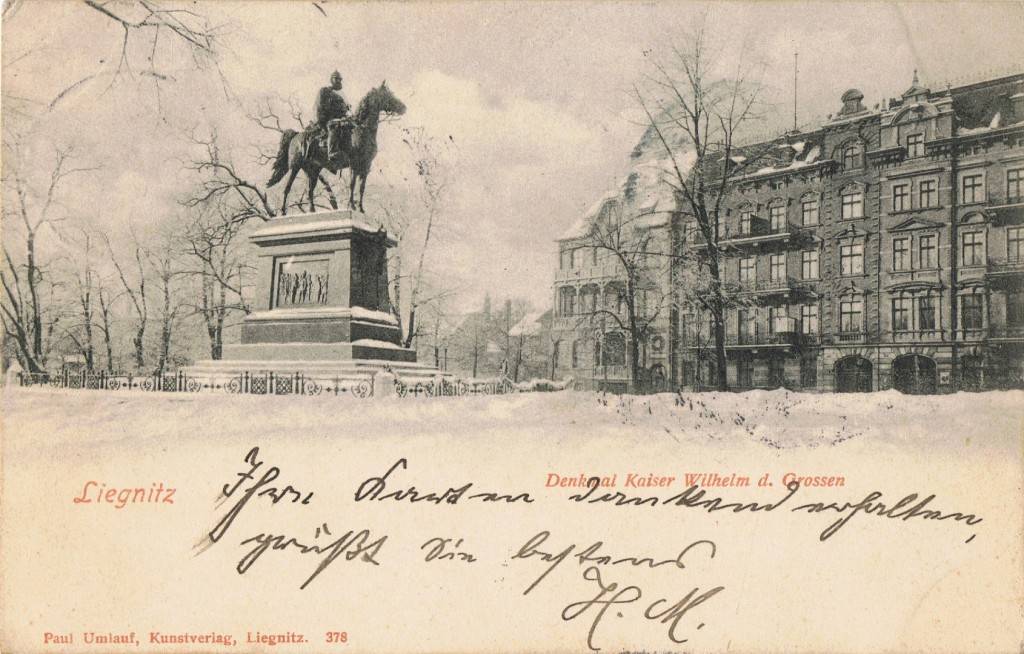 Liegnitz
Denkmal Kaiser Wilhelm d. Grossen
Ihre Karten dankend erhalten,
grüßt Sie bestens
H. M.
Paul Umlauf, Kunstverlag, Liegnitz. 378